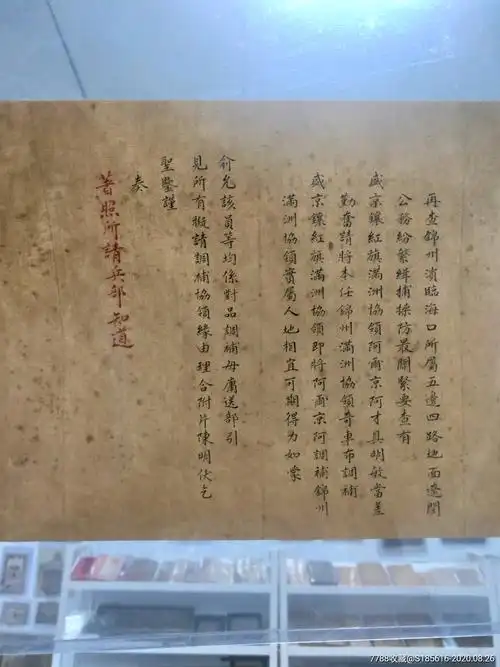 再查錦州濱臨海口所屬五邊四路地面遼闊
公務紛繁緝捕採防最關緊要查有
盛京鑲紅旗滿洲協領阿爾京阿才具明敏當差
勤奮請將本任錦州滿洲協領奇車布調補
盛京鑲紅旗滿洲協領即將阿爾京阿調補錦州
滿洲協領實屬人地相宜可期得力如蒙
俞允該員等均係對品調補毋庸送部引
見所有擬請調補協領緣由理合附片陳明伏乞
聖鑒謹
奏
著照所請兵部知道
7788收藏@S185616-2020.08.26